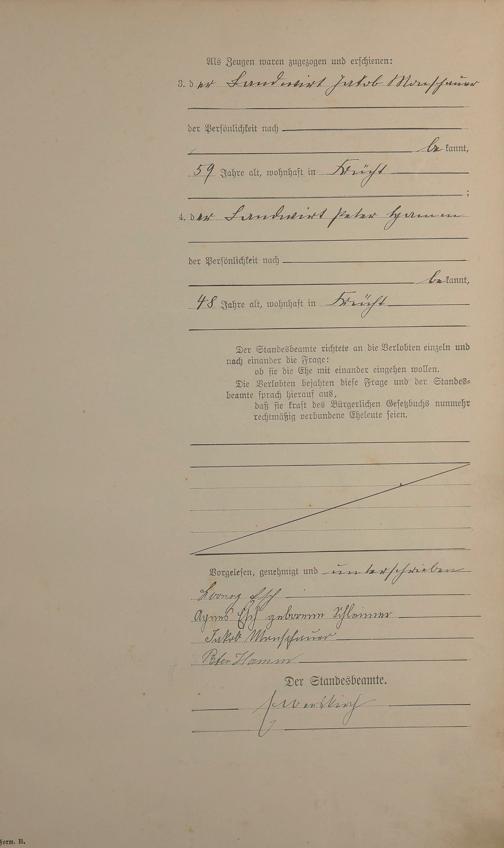 Als Zeugen waren zugezogen und erschienen:
3. der Landwirt Jakob Monschauer
der Persönlichkeit nach
be kannt,
59 Jahre alt, wohnhaft in Krücht
;
4. der Landwirt Peter Hamm
der Persönlichkeit nach
be kannt,
48 Jahre alt, wohnhaft in Krücht
Der Standesbeamte richtete an die Verlobten einzeln und
nach einander die Frage:
ob sie die Ehe mit einander eingehen wollen.
Die Verlobten bejahten diese Frage und der Standes-
beamte sprach hierauf aus,
daß sie kraft des Bürgerlichen Gesetzbuchs nunmehr
rechtmäßig verbundene Eheleute seien.
Vorgelesen, genehmigt und unterschrieben
Esch
Agnes Esch geborene
Jakob Monschauer
Peter Hamm
Der Standesbeamte.
Form. B.